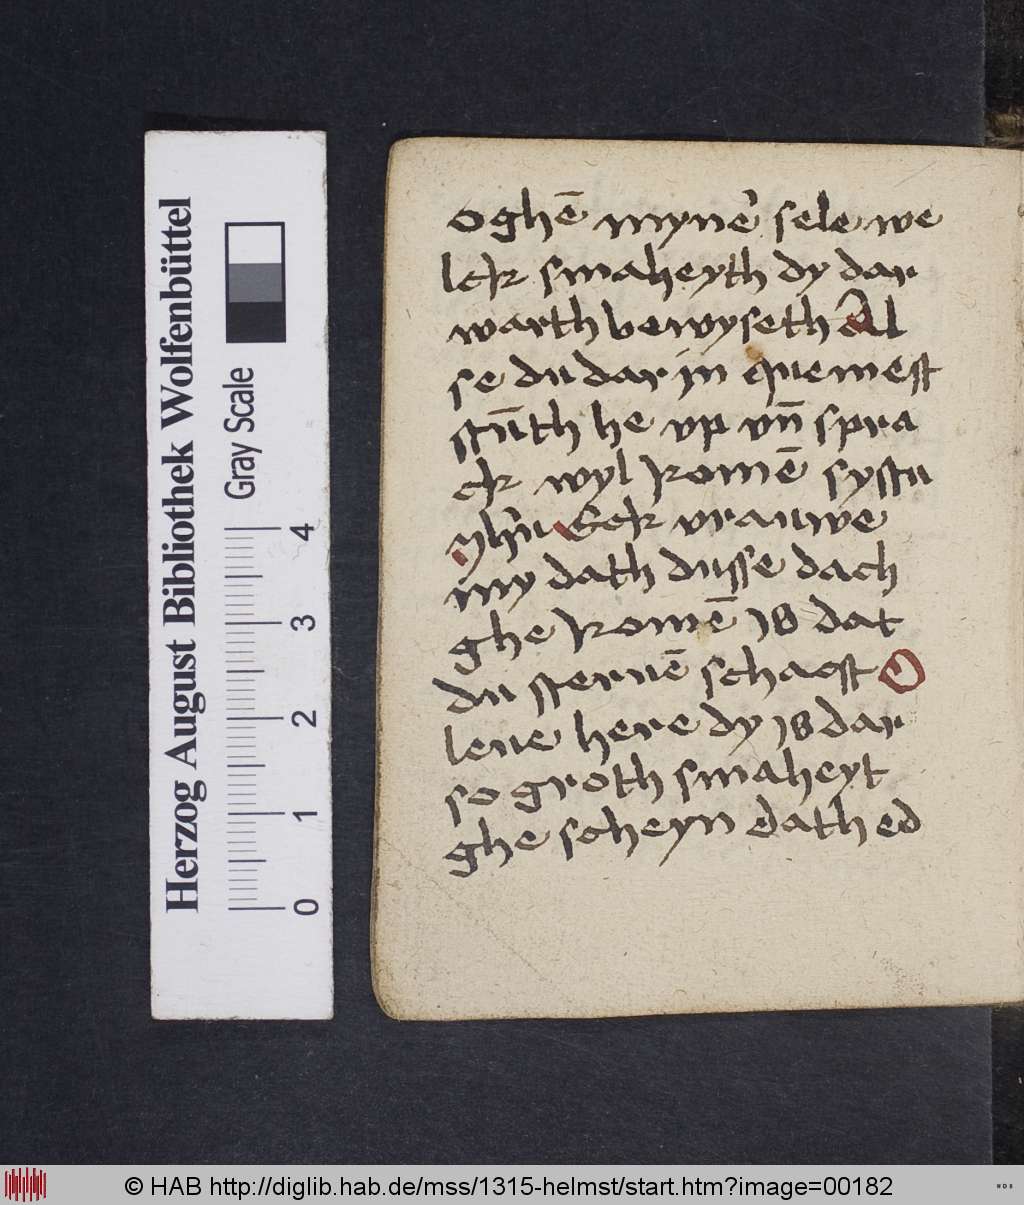 oghē myner sele we
lck smaheyth dy dar
warth bewyseth Al
se du dar in quemest
stūth he vp vn̄ spra
ck wyl komē systu
yhū Eck vrauwe
my dath dusse dach
ghe komē is dat
du steruē schacst O
leue here dy is dar
so groth smaheyt
ghe scheyn dath ed
Herzog August Bibliothek Wolfenbüttel
Gray Scale
0 1 2 3 4
© HAB http://diglib.hab.de/mss/1315-helmst/start.htm?image=00182